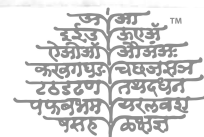 अ आ TM
इ ई उ ऊ ए ॲ
ऐ ओ औ अं अः
क ख ग घ ङ च छ ज झ ञ
ट ठ ड ढ ण त थ द ध न
प फ ब भ म य र ल व श
ष स ह ळ क्ष ज्ञ